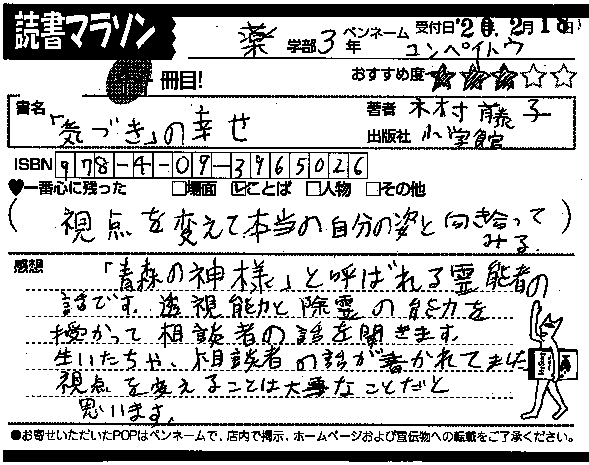 読書マラソン
薬 学部 3 年 ペンネーム コンペイトウ 受付日 '20.2月18日
冊目! おすすめ度 ★★★☆☆
書名 「気づき」の幸せ 著者 木村藤子
出版社 小学館
ISBN 978-4-09-3965026
♥一番心に残った □場面 ☑ことば □人物 □その他
(視点を変えて本当の自分の姿と向き合って
みる。)
感想 「青森の神様」と呼ばれる霊能者の
話です。透視能力と除霊の能力を
授かって相談者の話を聞きます。
生いたちや、相談者の話が書かれてました
視点を変えることは大事なことだと
思います。
●お寄せいただいたPOPはペンネームで、店内で掲示、ホームページおよび宣伝物への転載をご了承ください。